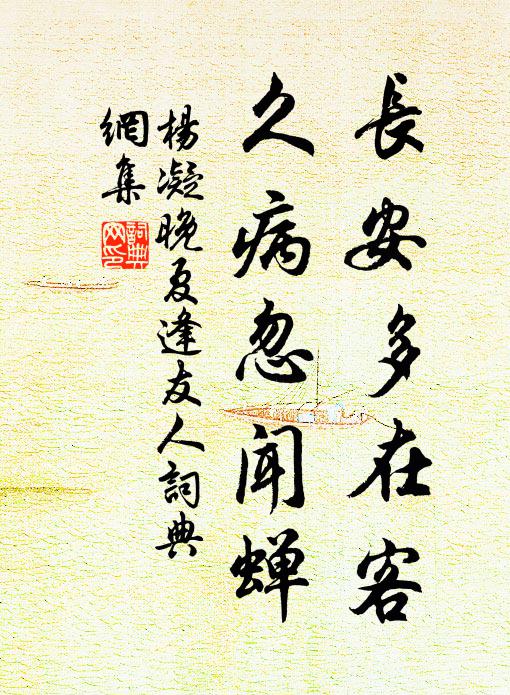 長安多在客
久病忽闻蝉
楊凝晚夏逢友人詞典
網集
詞典
网印